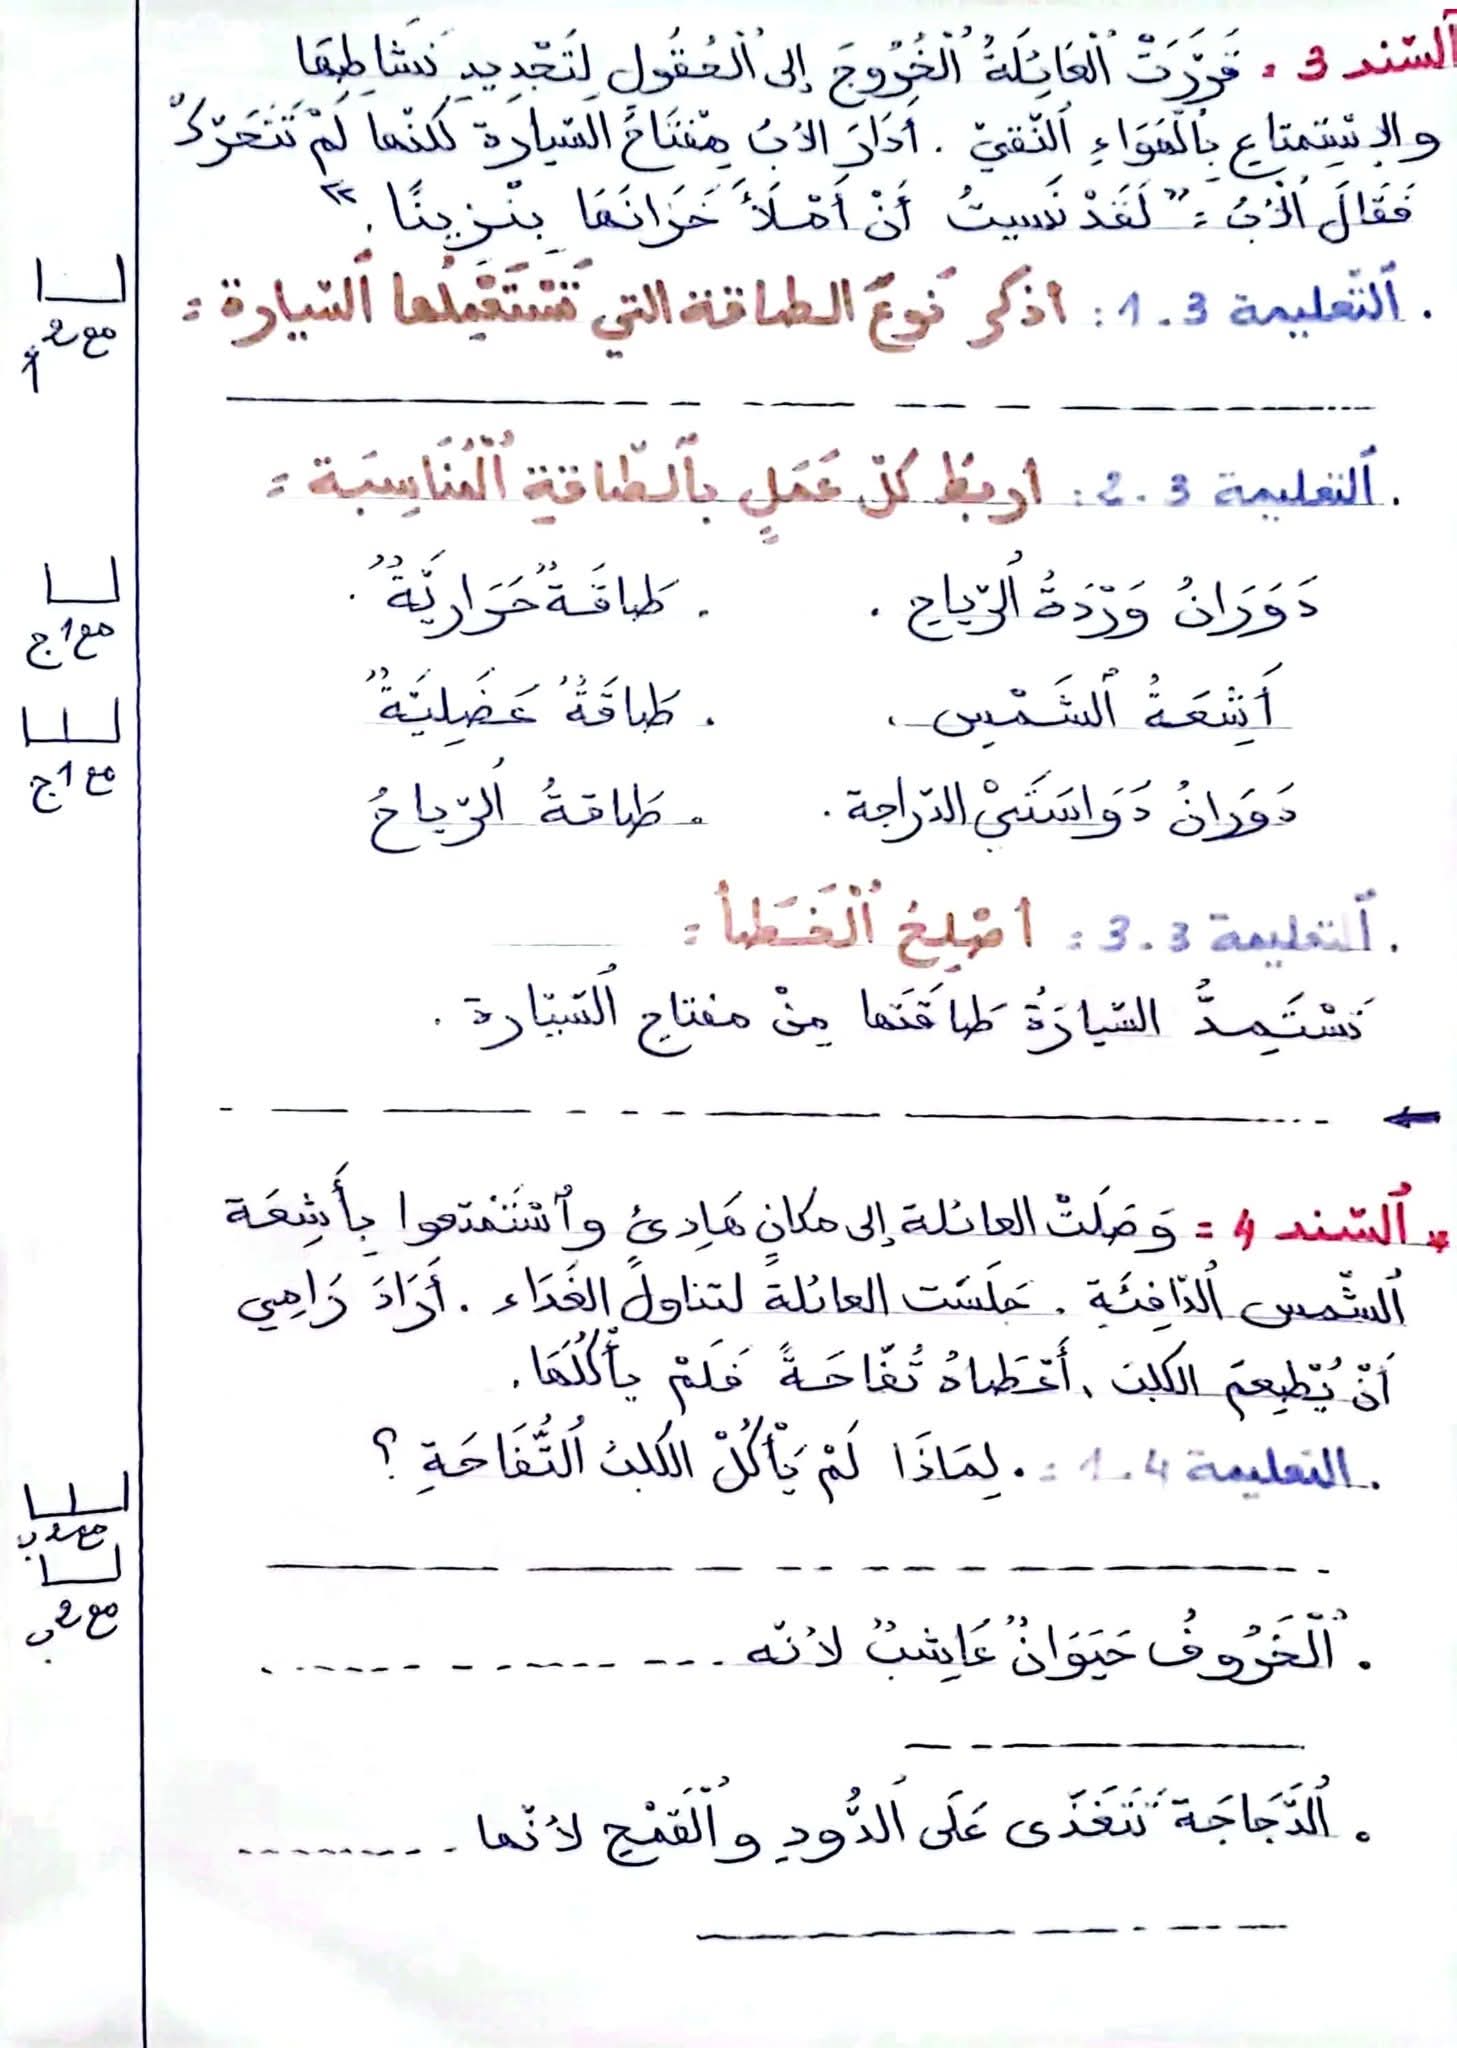 السّند 3 : قَرَّرَتْ ٱلْعَائِلَةُ ٱلْخُرُوجَ إلى ٱلْحُقُولِ لِتَجْدِيدِ نَشَاطِهَا
والاِسْتِمتاعِ بِٱلْهَوَاءِ ٱلنّقيّ . أدَارَ الأبُ مِفْتَاحَ السّيارة لكنّها لَمْ تَتَحَرّكْ
فَقَالَ ٱلأبُ : " لَقَدْ نَسيتُ أَنْ أَمْلَأَ خَزانَهَا بِنْزينًا . "
. ٱلتّعليمة 1.3 : اذكر نَوعَ الطاقة التي تَسْتَعْمِلُها ٱلسّيارة :
مع2أ
. ٱلتعليمة 2.3 : اربط كلّ عَمَلٍ بٱلطّاقةِ ٱلْمُنَاسِبَة :
دَوَرَانُ وَرْدَةُ ٱلرّياحِ . . طَاقَةٌ حَرَاريَّةٌ .
مع1ج
أَشِعَةُ ٱلشَمْسِ . . طَاقَةٌ عَضَلِيَّةٌ
مع1ج
دَوَرَانُ دَوَاسَتَيْ الدّراجة . . طَاقةُ ٱلرّياحُ
. ٱلتعليمة 3.3 : اصْلِحُ ٱلْخَطأ :
تَسْتَمِدُّ السّيارَةُ طَاقَتَها مِنْ مفتاحِ ٱلسّيّارة .
* ٱلسّند 4 : وَصَلَتْ العائلة إلى مكانٍ هَادِئٍ وٱسْتَمْتعوا بِأَشِعَة
ٱلشّمس ٱلدّافِئَةِ . جَلَسَت العائلةَ لتناولَ الغَدَاء . أَرَادَ رَامِي
أنّ يُطْعِمَ الكلبَ ، أَعْطاهُ تُفّاحَةً فَلمْ يأْكُلْهَا .
. التعليمة 1.4 : . لِمَاذَا لَمْ يَأْكُلْ الكلبُ ٱلتُّفَاحَةِ ؟
مع2ب
مع2ب
. ٱلْخَرُوفُ حَيَوَانٌ عَاشِبٌ لأنّه ..............
. ٱلدَّجَاجَة تَتَغَذّى عَلَى ٱلدُّودِ وٱلْقَمْحِ لأنّها .........